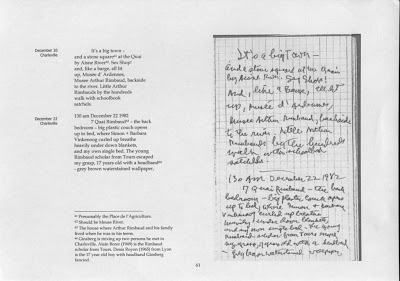 December 20
Charleville
It's a big town –
and a stone square⁴⁰ at the Quai
by Aisne River⁴¹ Sex Shop!
and, like a barge, all lit
up, Musée d' Ardennes,
Musee Arthur Rimbaud, backside
to the river. Little Arthur
Rimbauds by the hundreds
walk with schoolbook
satchels.
December 22
Charleville
130 am December 22 1982
7 Quai Rimbaud⁴² – the back
bedroom – big plastic couch opens
up to bed, where Simon + Barbara
Vinkenoog curled up breathe
heavily under down blankets,
and my own single bed. The young
Rimbaud scholar from Tours escaped
my grasp, 17 years old with a headband⁴³
- grey brown waterstained wallpaper,
⁴⁰ Presumably the Place de l'Agriculture.
⁴¹ Should be Meuse River.
⁴² The house where Arthur Rimbaud and his family
lived when he was in his teens.
⁴³ Ginsberg is mixing up two persons he met in
Charleville. Alain Borer (1949) is the Rimbaud
scholar from Tours. Denis Royon (1965) from Lyon
is the 17 year old boy with headband Ginsberg
fancied.
61
It's a big town –
and a stone square at the Quai
by Aisne River. Sex Shop!
And, like a Barge, all lit
up, Musée d'Ardennes,
Musee Arthur Rimbaud, backside
to the river. Little Arthur
Rimbauds by the hundreds
walk with schoolbook
satchels.
130 AM December 22 1982
7 Quai Rimbaud – the back
bedroom – big plastic couch opens
up to bed, where Simon + Barbara
Vinkenoog curled up breathe
heavily under down blankets,
and my own single bed. The young
Rimbaud scholar from Tours escaped
my grasp, 17 years old with a headband
– grey brown waterstained wallpaper